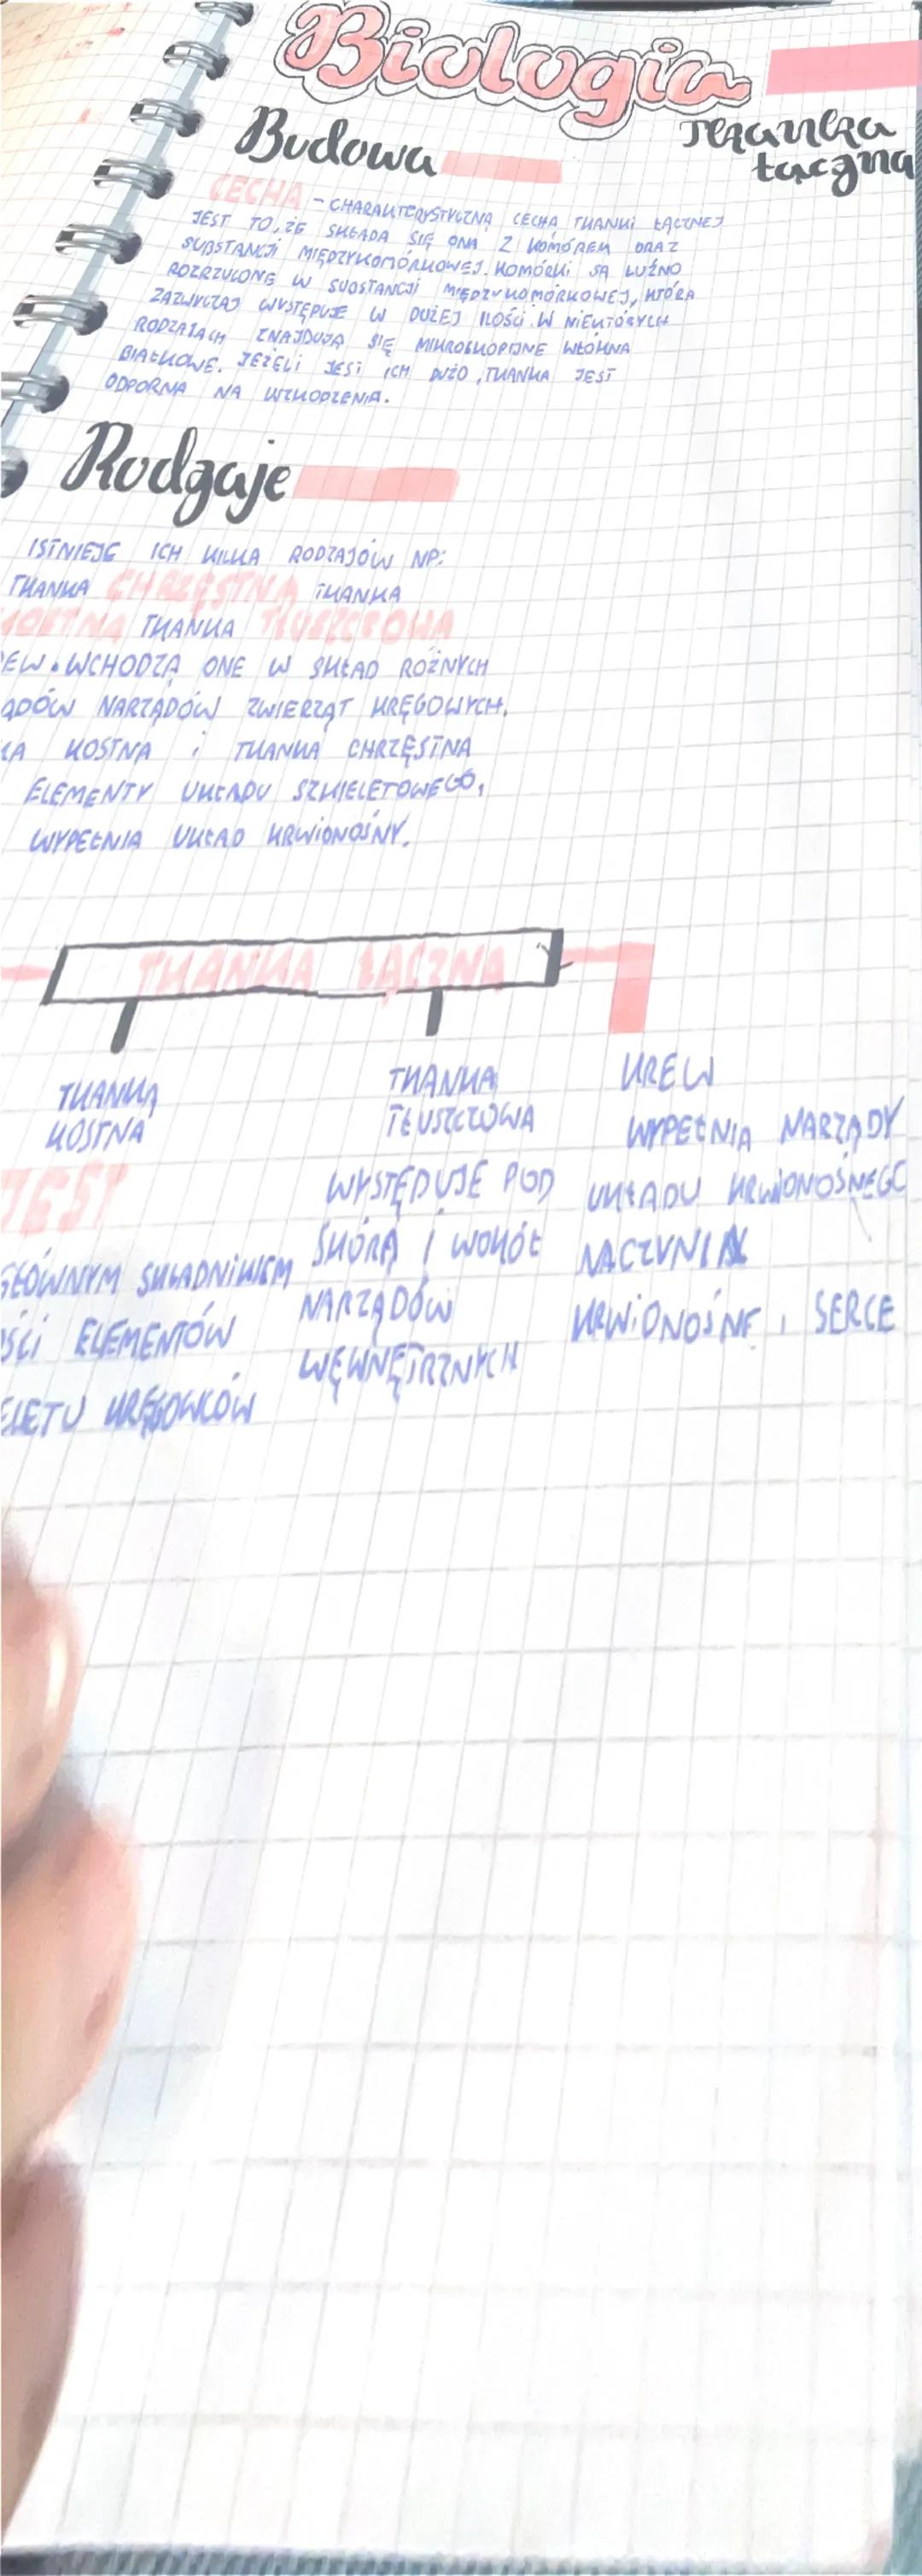 Biologia
Tkanka
łączna
Budowa
CECHA - CHARAKTERYSTYCZNĄ CECHĄ TKANKI ŁĄCZNEJ
JEST TO, ŻE SKŁADA SIĘ ONA Z KOMÓREK ORAZ
SUBSTANCJI MIĘDZYKOMÓRKOWEJ. KOMÓRKI SĄ LUŹNO
ROZRZUCONE W SUBSTANCJI MIĘDZYKOMÓRKOWEJ, KTÓRA
ZAZWYCZAJ WYSTĘPUJE W DUŻEJ ILOŚCI. W NIEKTÓRYCH
RODZAJACH ZNAJDUJĄ SIĘ MIKROSKOPIJNE WŁÓKNA
BIAŁKOWE. JEŻELI JEST ICH DUŻO, TKANKA JEST
ODPORNA NA USZKODZENIA.
Rodzaje
ISTNIEJE ICH KILKA RODZAJÓW NP:
TKANKA CHRZĘSTNA TKANKA
KOSTNA TKANKA TŁUSZCZOWA
EW. WCHODZĄ ONE W SKŁAD RÓŻNYCH
ĄDÓW NARZĄDÓW ZWIERZĄT KRĘGOWYCH.
KA KOSTNA i TKANKA CHRZĘSTNA
ELEMENTY UKŁADU SZKIELETOWEGO,
WYPEŁNIA UKŁAD KRWIONOŚNY.
TKANKA ŁĄCZNA
TKANKA
KOSTNA
JEST
GŁÓWNYM SKŁADNIKIEM
ŚCI ELEMENTÓW
ELETU KRĘGOWCÓW
TKANKA
TŁUSZCZOWA
WYSTĘPUJE POD
SKÓRĄ I WOKÓŁ
NARZĄDÓW
WĘWNĘTRZNYCH
KREW
WYPEŁNIA NARZĄDY
UKŁADU KRWIONOŚNEGO
NACZYNIA
KRWIONOŚNE i SERCE